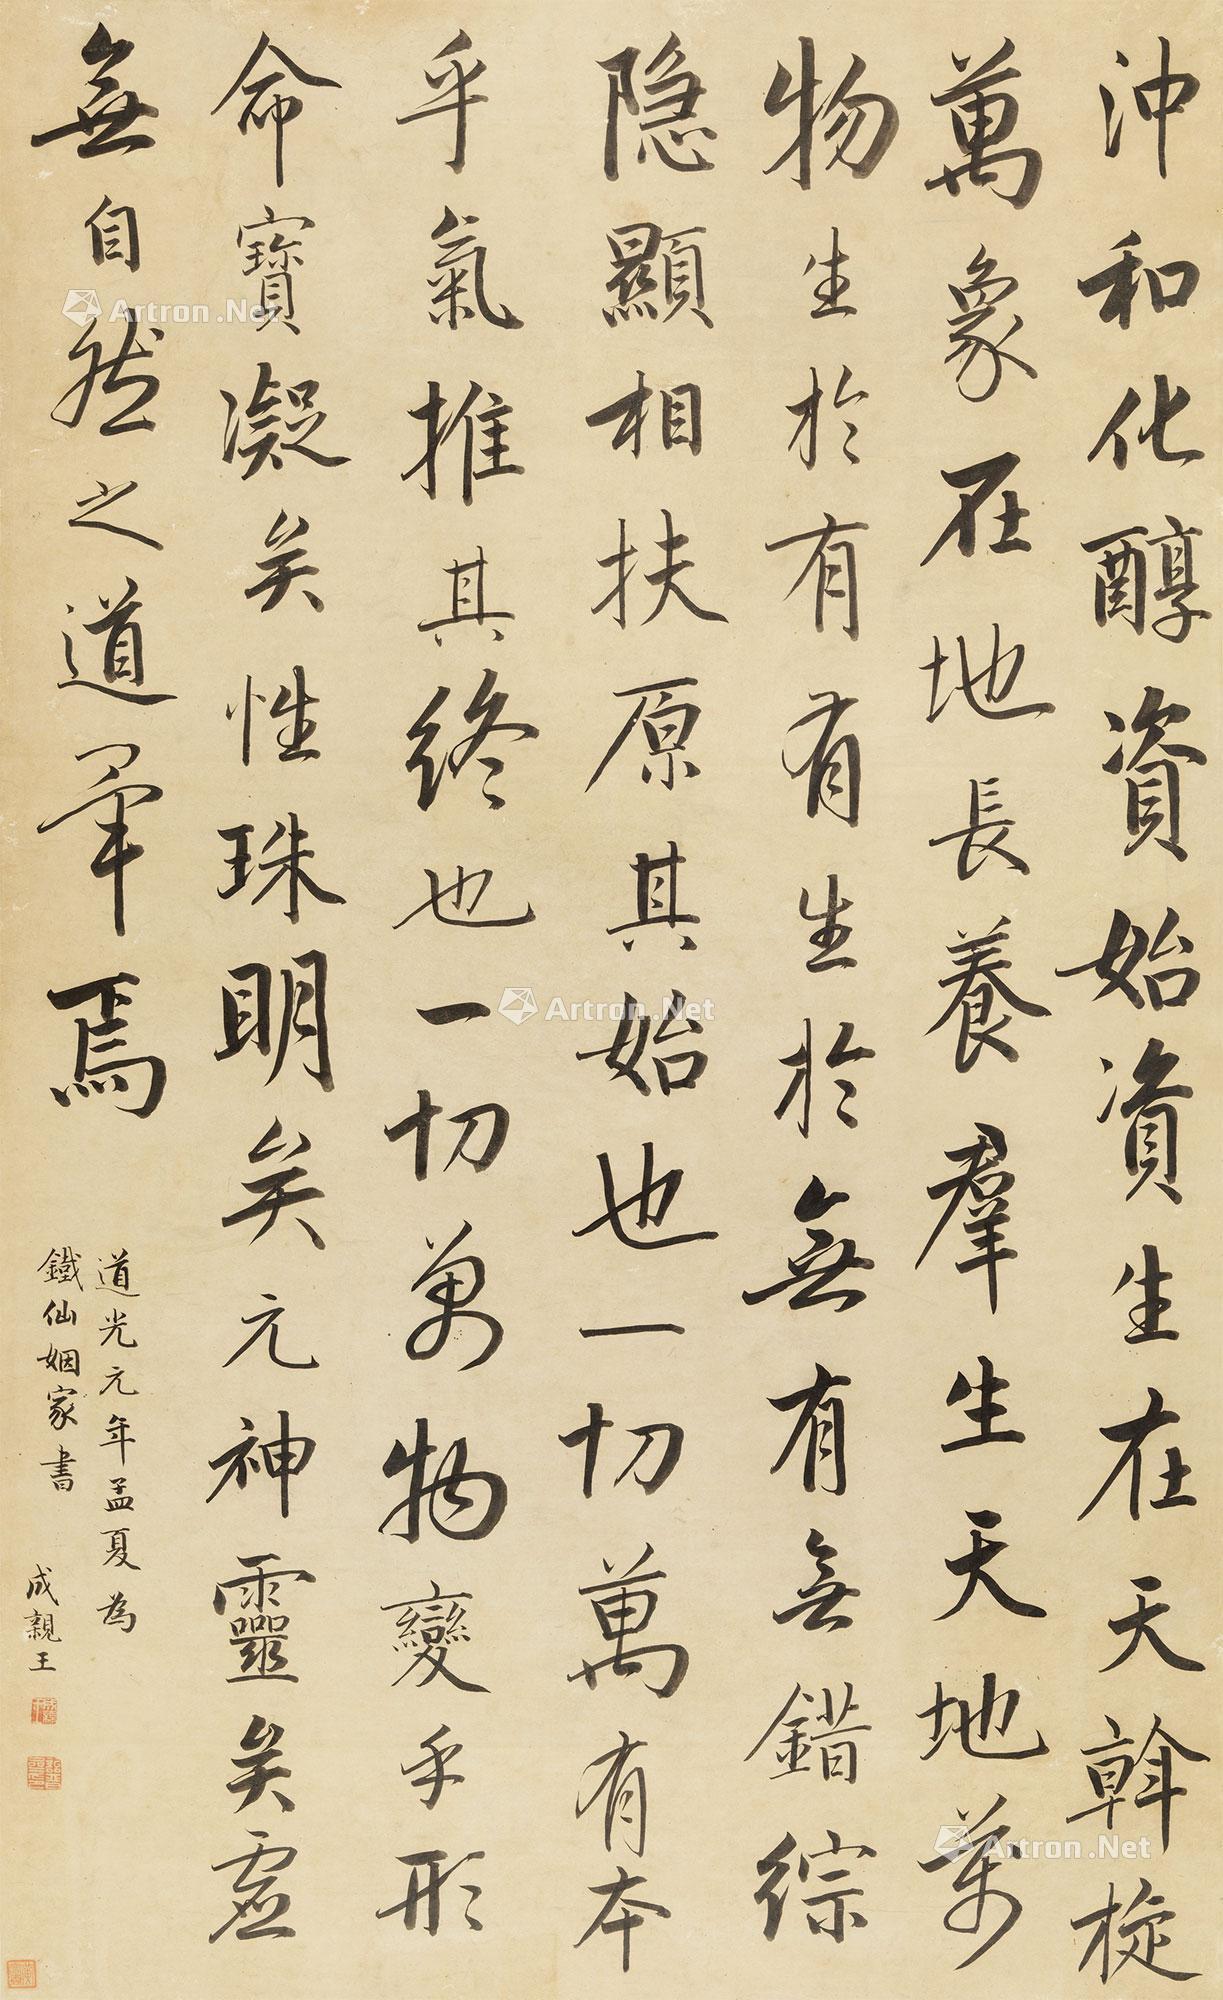 沖和化醇資始資生在天斡旋
萬象在地長養羣生天地萬
物生於有有生於無有無錯綜
隐顯相扶原其始也一切萬有本
乎氣推其終也一切萬物變乎形
命寶凝矣性珠明矣元神靈矣虛
無自然之道畢焉
道光元年孟夏為
鐵仙姻家書
成親王
Artron.Net
Artron.Net
Artron.Net